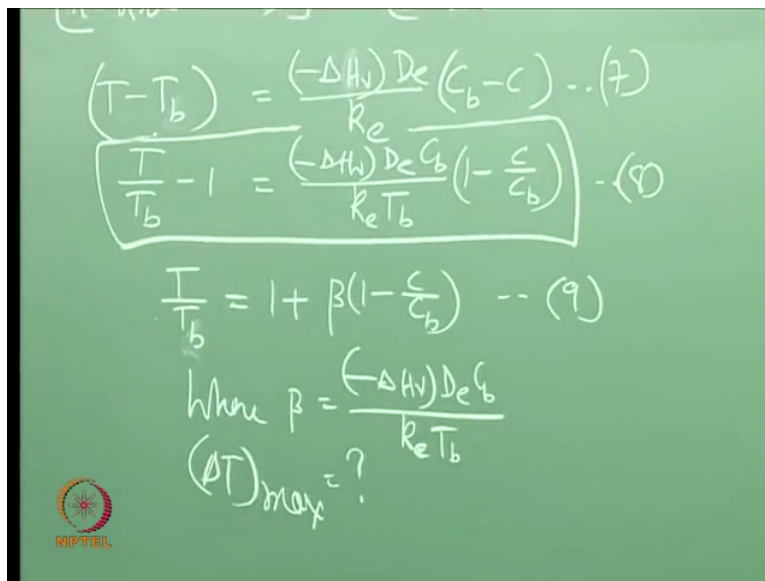 (T - T_b) = (-ΔHr) De / ke (C_b - C) -- (7)
T/T_b - 1 = (-ΔHr) De C_b / ke T_b (1 - C/C_b) -- (8)
T/T_b = 1 + β(1 - C/C_b) -- (9)
Where β = (-ΔHr) De C_b / ke T_b
(ΔT)max = ?
NPTEL